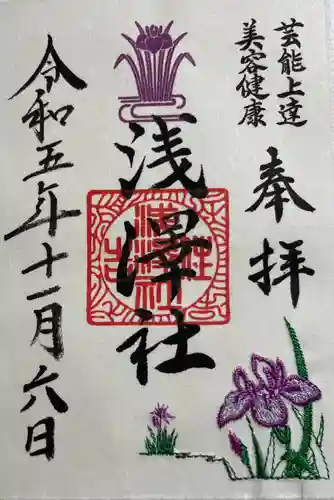 芸能上達
美容健康
奉拝
浅澤社
令和五年十一月六日